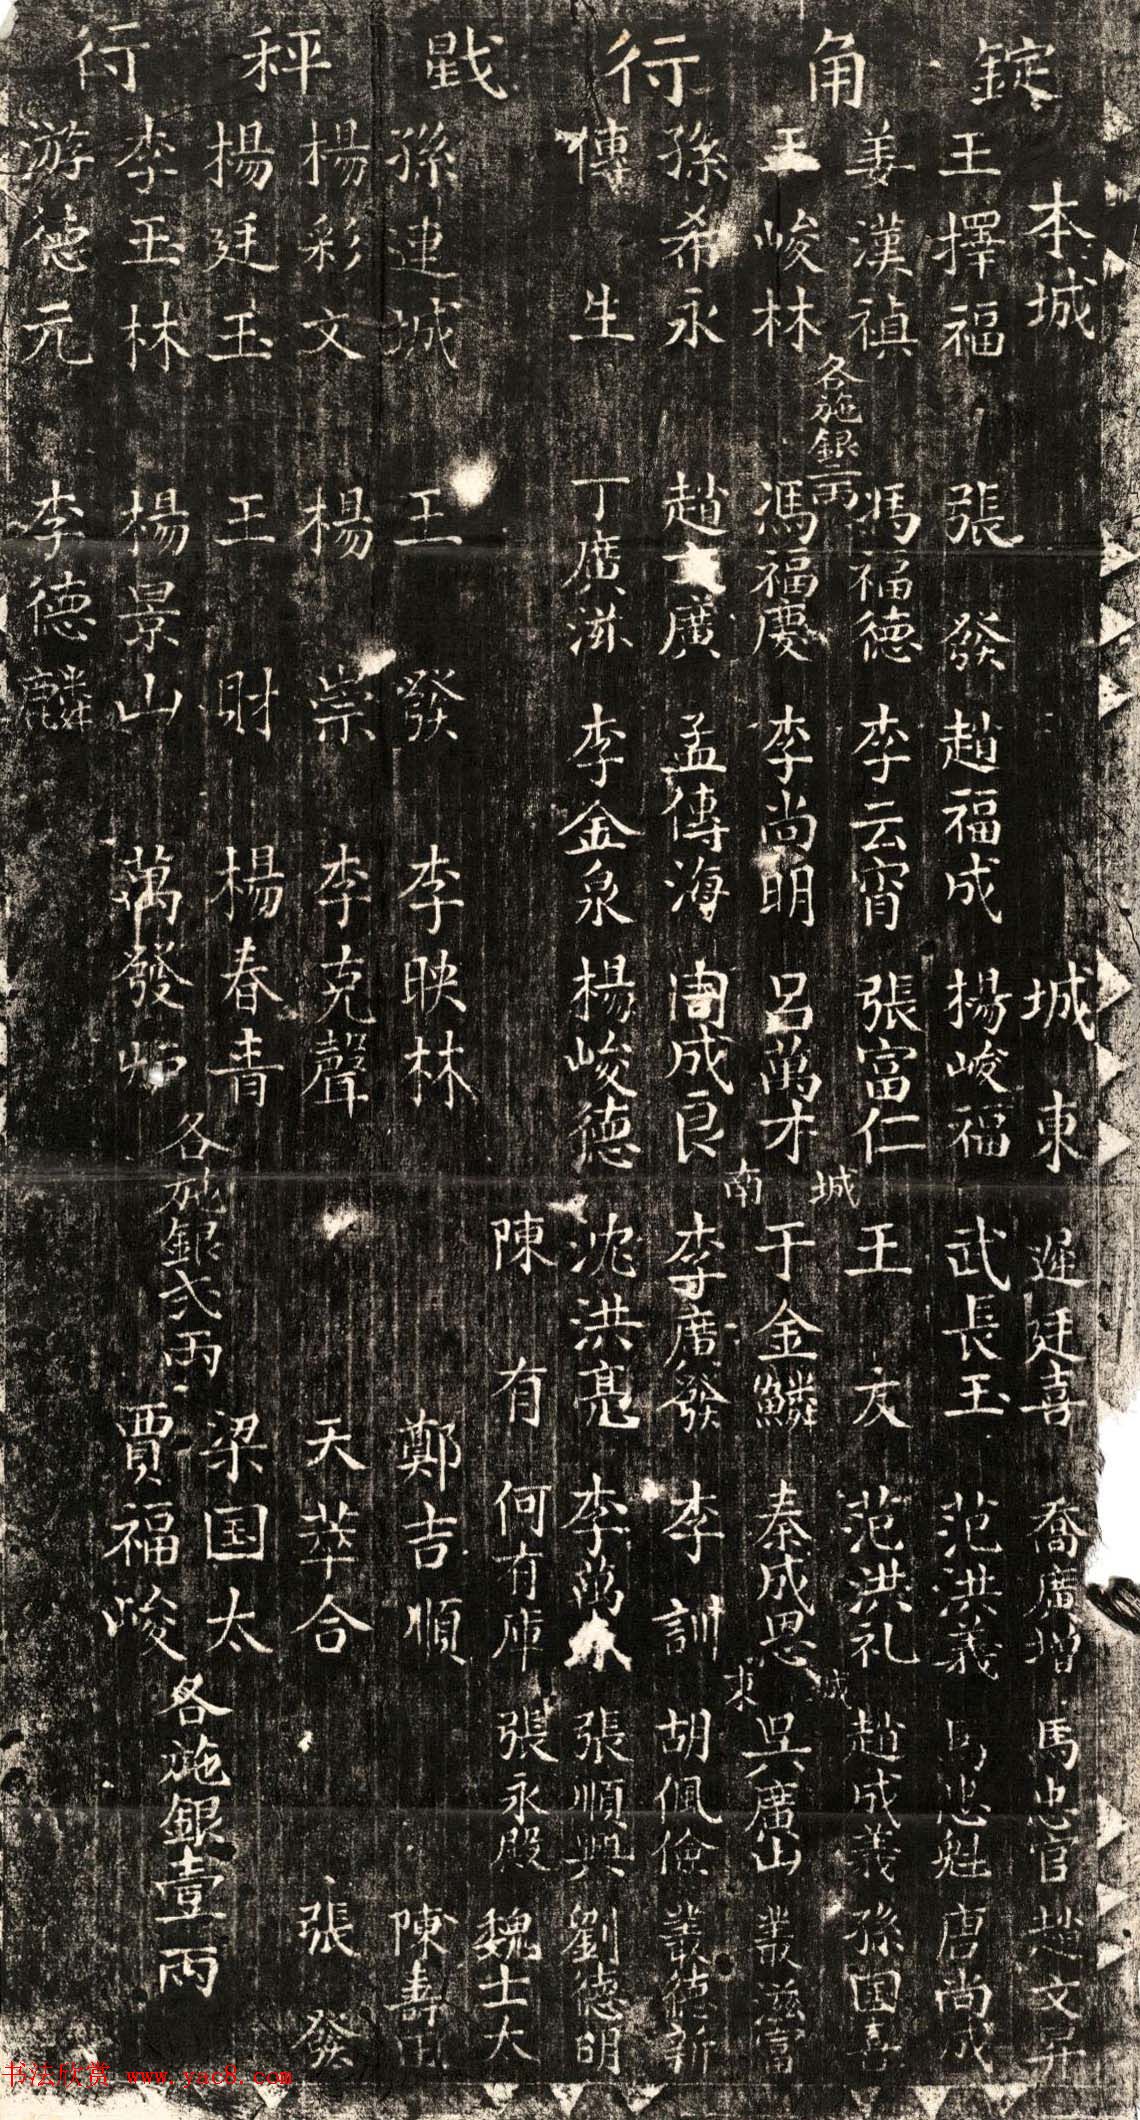 錠角行戥秤行
本城 城東 遲廷喜 喬廣增 馬忠官 趙文昇
王擇福 張發 趙福成 楊峻福 武長玉 范洪義 馬忠魁 唐尚成
姜漢禎 馮福德 李云霄 張富仁 王友 范洪礼 趙成義 孫国喜
各施銀二兩 城南 城東
王峻林 馮福慶 李尚明 呂萬才 于金鱗 秦成恩 吳廣山 叢滋富
孫希永 趙廣 孟傳海 周成良 李廣發 李訓 胡佩儉 叢德新
傅生 丁廣滋 李金泉 楊峻德 沈洪亮 李萬 張順興 劉德明
陳有 何有庫 張永殿 魏士大
孫連城 王發 李映林 鄭吉順 陳壽
楊彩文 楊崇 李克聲 天萃合 張發
楊廷玉 王財 楊春青 梁国太
各施銀弍兩 各施銀壹兩
李玉林 楊景山 萬發炉 賈福峻
游德元 李德麟
书法欣赏 www.yac8.com